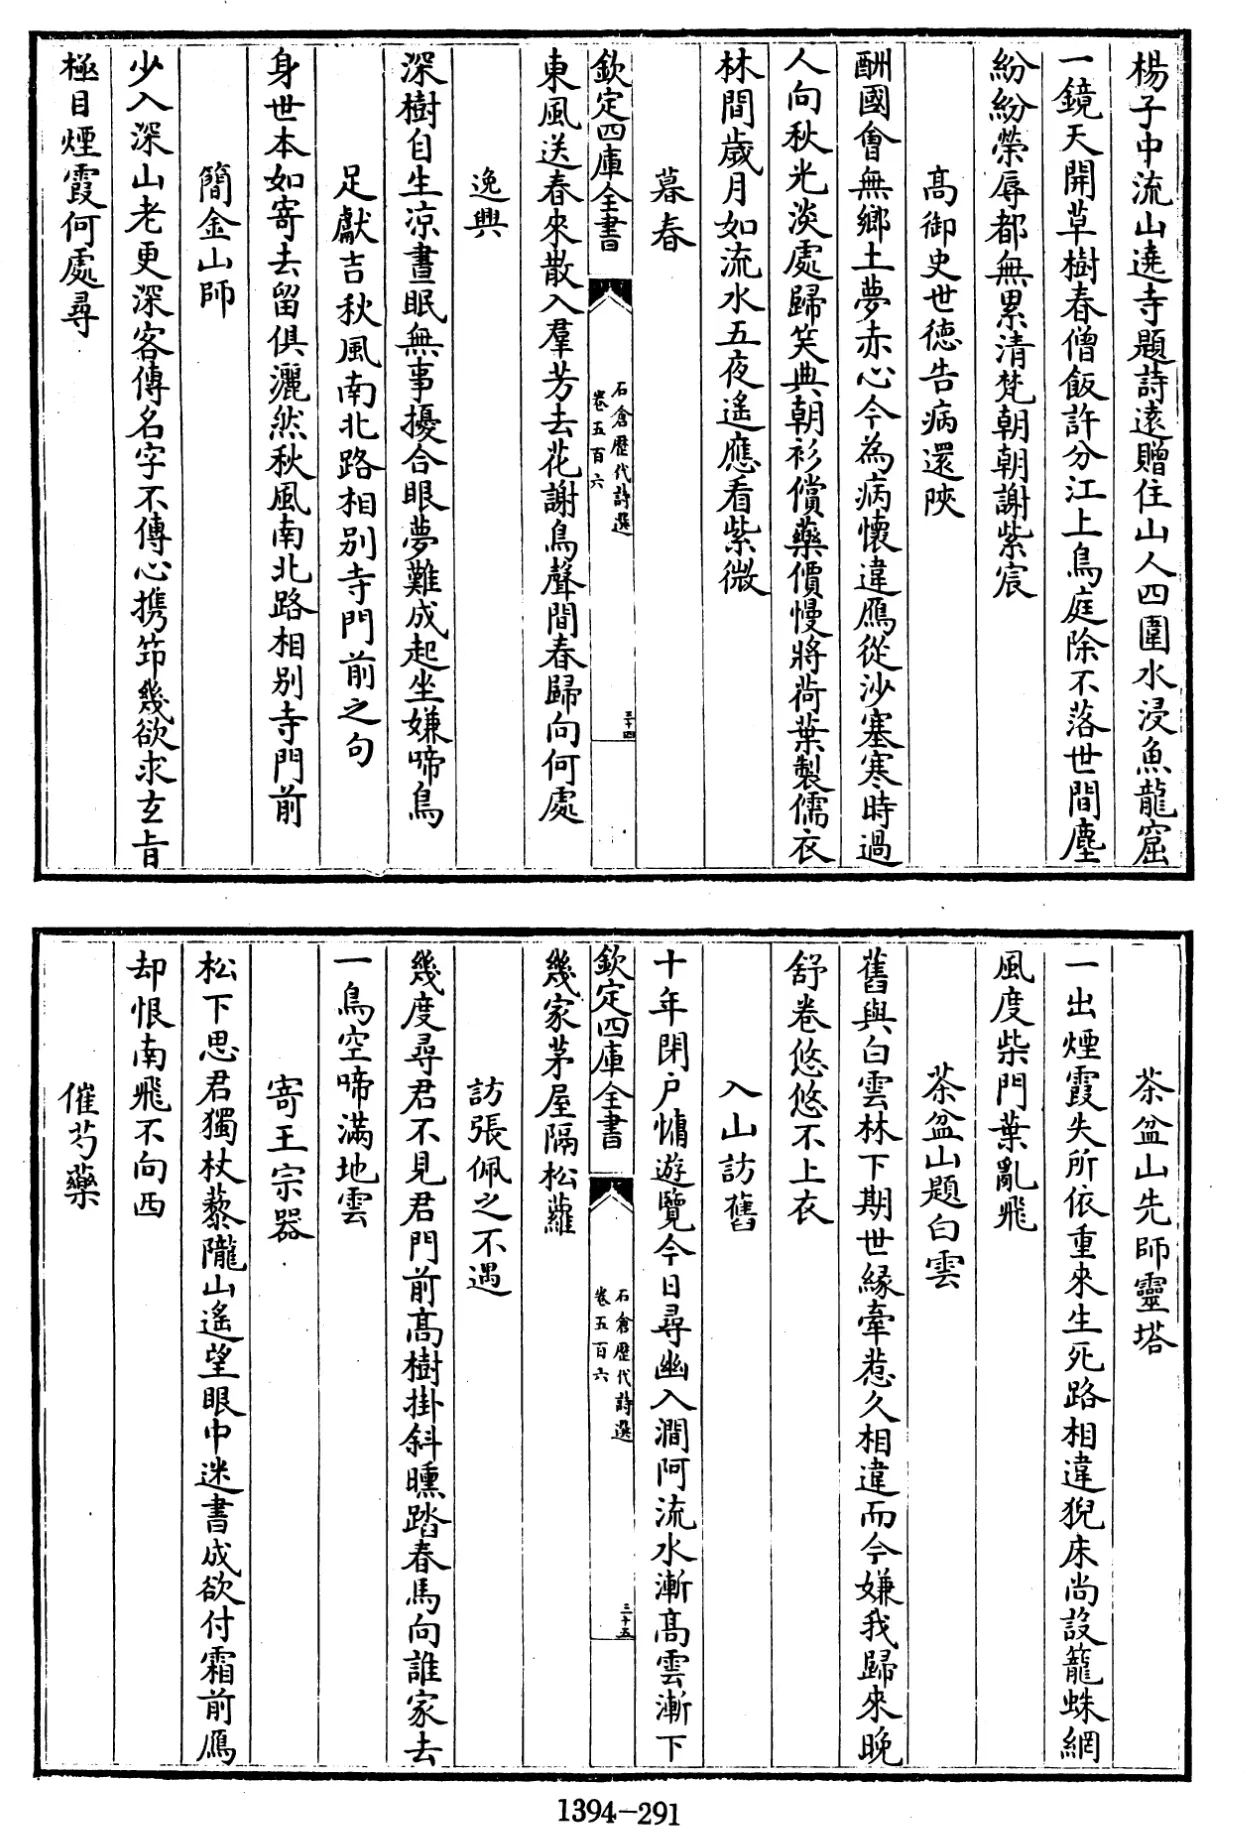 楊子中流山遶寺題詩遠贈住山人四圍水浸魚龍窟
一鏡天開草樹春僧飯許分江上鳥庭除不落世間塵
紛紛榮辱都無累清梵朝朝謝紫宸
高御史世徳告病還陜
酬國會無鄉土夢赤心今為病懷違鴈從沙塞寒時過
人向秋光淡處歸笑典朝衫償藥價慢將荷葉製儒衣
林間歲月如流水五夜遙應看紫微
暮春
欽定四庫全書
石倉歷代詩選
卷五百六
三十四
東風送春來散入羣芳去花謝鳥聲間春歸向何處
逸興
深樹自生凉晝眠無事擾合眼夢難成起坐嫌啼鳥
足獻吉秋風南北路相别寺門前之句
身世本如寄去留俱灑然秋風南北路相别寺門前
簡金山師
少入深山老更深客傳名字不傳心携笻幾欲求𤣥旨
極目煙霞何處尋
茶盆山先師靈塔
一出煙霞失所依重來生死路相違猊床尚設籠蛛網
風度柴門葉亂飛
茶盆山題白雲
舊與白雲林下期世緣牽惹久相違而今嫌我歸來晚
舒卷悠悠不上衣
入山訪舊
十年閉户慵遊覽今日尋幽入澗阿流水漸高雲漸下
欽定四庫全書
石倉歷代詩選
卷五百六
三十五
幾家茅屋隔松蘿
訪張佩之不遇
幾度尋君不見君門前高樹掛斜曛踏春馬向誰家去
一鳥空啼滿地雲
寄王宗器
松下思君獨杖藜隴山遙望眼中迷書成欲付霜前鴈
却恨南飛不向西
催芍藥
1394-291